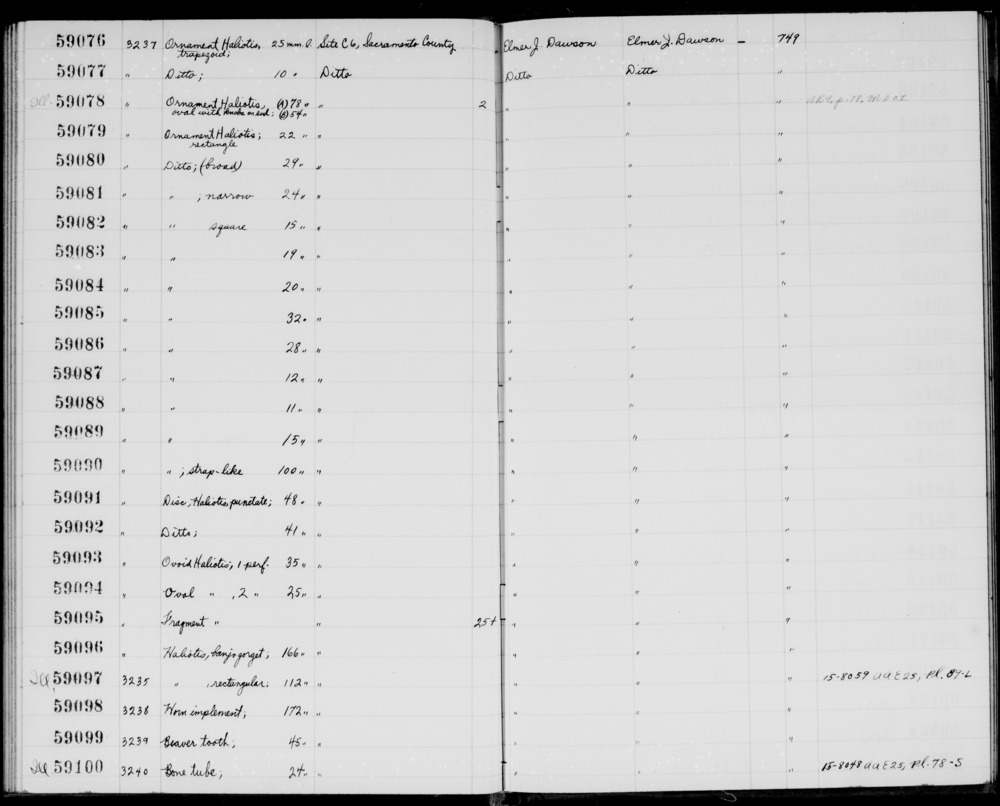 59076 3237 Ornament Haliotis, 25 mm. l. Site C6, Sacramento County Elmer J. Dawson Elmer J. Dawson — 749
trapezoid;
59077 " Ditto; 10 " Ditto Ditto Ditto "
Ill. 59078 " Ornament Haliotis, (A) 78 " " 2 " " "
oval with knobs on end; (B) 54 "
59079 " Ornament Haliotis; 22 " " " " "
rectangle
59080 " Ditto; (broad) 29 " " " " "
59081 " " ; narrow 24 " " " " "
59082 " " square 15 " " " " "
59083 " " 19 " " " " "
59084 " " 20 " " " " "
59085 " " 32 " " " " "
59086 " " 28 " " " " "
59087 " " 12 " " " " "
59088 " " 11 " " " " "
59089 " " 15 " " " " "
59090 " " ; strap-like 100 " " " " "
59091 " Disc, Haliotis, punctate; 48 " " " " "
59092 " Ditto; 41 " " " " "
59093 " Ovoid Haliotis, 1 perf. 35 " " " " "
59094 " Oval " , 2 " 25 " " " " "
59095 " Fragment " " 25+ " " "
59096 " Haliotis, banjo gorget; 166 " " " " "
Ill. 59097 3235 " , rectangular; 112 " " " " " 15-8059 UAE25, Pl. 89-L
59098 3238 Horn implement; 172 " " " " "
59099 3239 Beaver tooth; 45 " " " " "
Ill 59100 3240 Bone tube; 24 " " " " " 15-8048 UAE25, Pl. 78-S